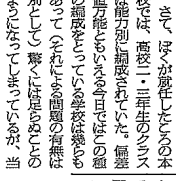 さて、ぼくが就任したころの本
校では、高校二・三年生のクラス
は能力別に編成されていた。偏差
値万能ともいえる今日ではこの種
の編成をとっている学校は幾らも
あって（それによる問題の有無は
別として）驚くには足らぬことの
ようになってしまっているが、当